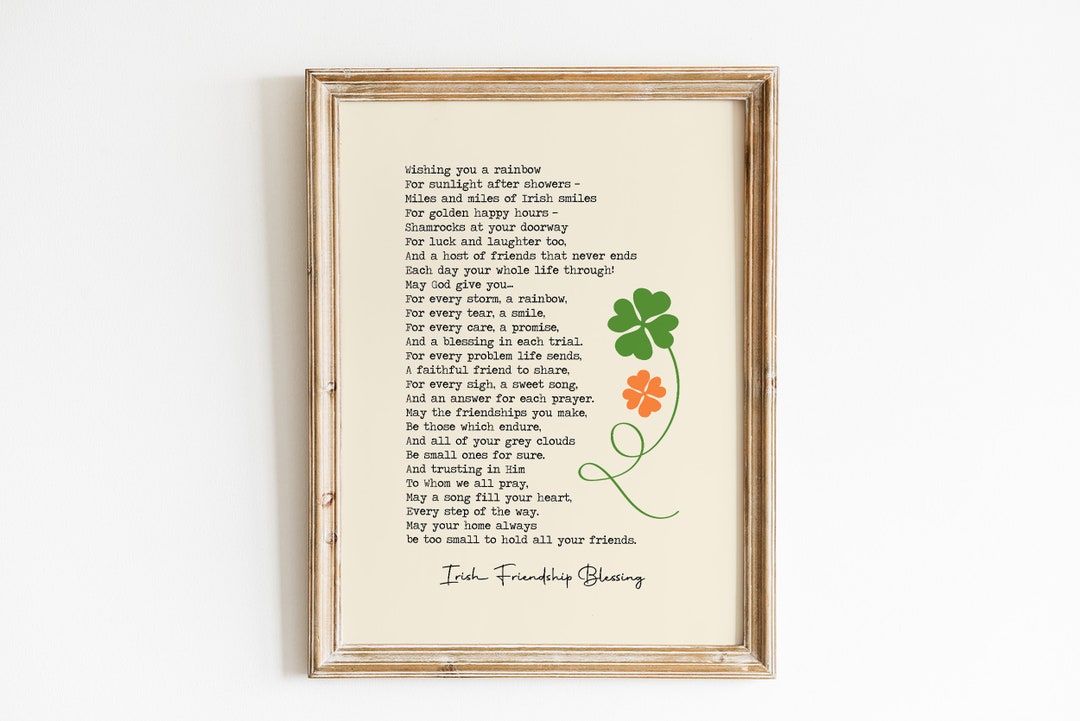 Wishing you a rainbow
For sunlight after showers –
Miles and miles of Irish smiles
For golden happy hours –
Shamrocks at your doorway
For luck and laughter too,
And a host of friends that never ends
Each day your whole life through!
May God give you…
For every storm, a rainbow,
For every tear, a smile,
For every care, a promise,
And a blessing in each trial.
For every problem life sends,
A faithful friend to share,
For every sigh, a sweet song,
And an answer for each prayer.
May the friendships you make,
Be those which endure,
And all of your grey clouds
Be small ones for sure.
And trusting in Him
To Whom we all pray,
May a song fill your heart,
Every step of the way.
May your home always
be too small to hold all your friends.
Irish Friendship Blessing